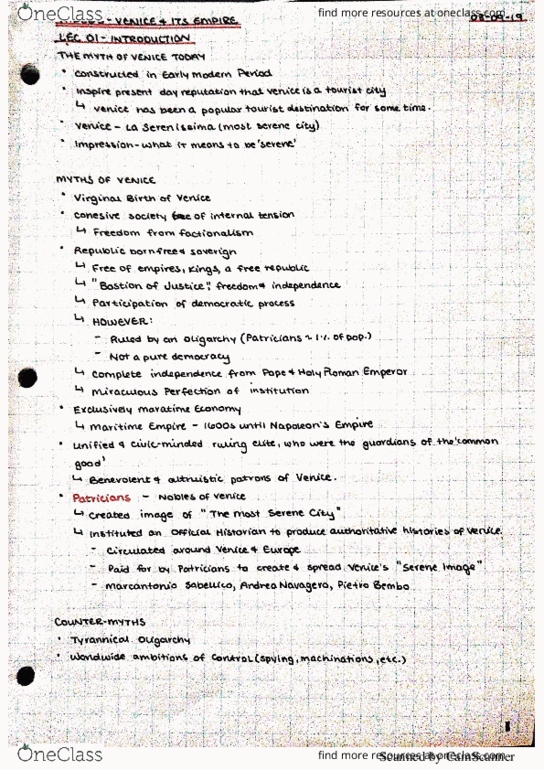 OneClass find more resources at oneclass.com
- VENICE & ITS EMPIRE 09-09-19
LEC 01 - INTRODUCTION
THE MYTH OF VENICE TODAY
• Constructed in Early Modern Period
• Inspire present day reputation that Venice is a tourist city
↳ Venice has been a popular tourist destination for some time.
• Venice - La Serenissima (most serene city)
• Impression - what it means to be 'serene'
MYTHS OF VENICE
• Virginal Birth of Venice
• Cohesive society free of internal tension
↳ Freedom from factionalism
• Republic born free & soverign
↳ Free of empires, kings, a free republic
↳ "Bastion of Justice", freedom & independence
↳ Participation of democratic process
↳ HOWEVER:
- Ruled by an oligarchy (Patricians ~ 1% of pop.)
- Not a pure democracy
↳ Complete independence from Pope & Holy Roman Emperor
↳ Miraculous Perfection of institution
• Exclusively maratime Economy
↳ maritime Empire - 1600s until Napoleon's Empire
• Unified & civic-minded ruling elite, who were the guardians of the 'common
good'
↳ Benevolent & altruistic patrons of Venice.
• Patricians - Nobles of Venice
↳ Created image of "The most Serene City"
↳ Instituted an Official Historian to produce authoritative histories of Venice.
- Circulated around Venice & Europe
- Paid for by Patricians to create & spread Venice's "Serene Image"
- Marcantonio Sabellico, Andrea Navagero, Pietro Bembo
COUNTER-MYTHS
• Tyrannical Oligarchy
• Worldwide ambitions of control (spying, machinations, etc.)
1
OneClass find more resources at oneclass.com
Scanned by CamScanner